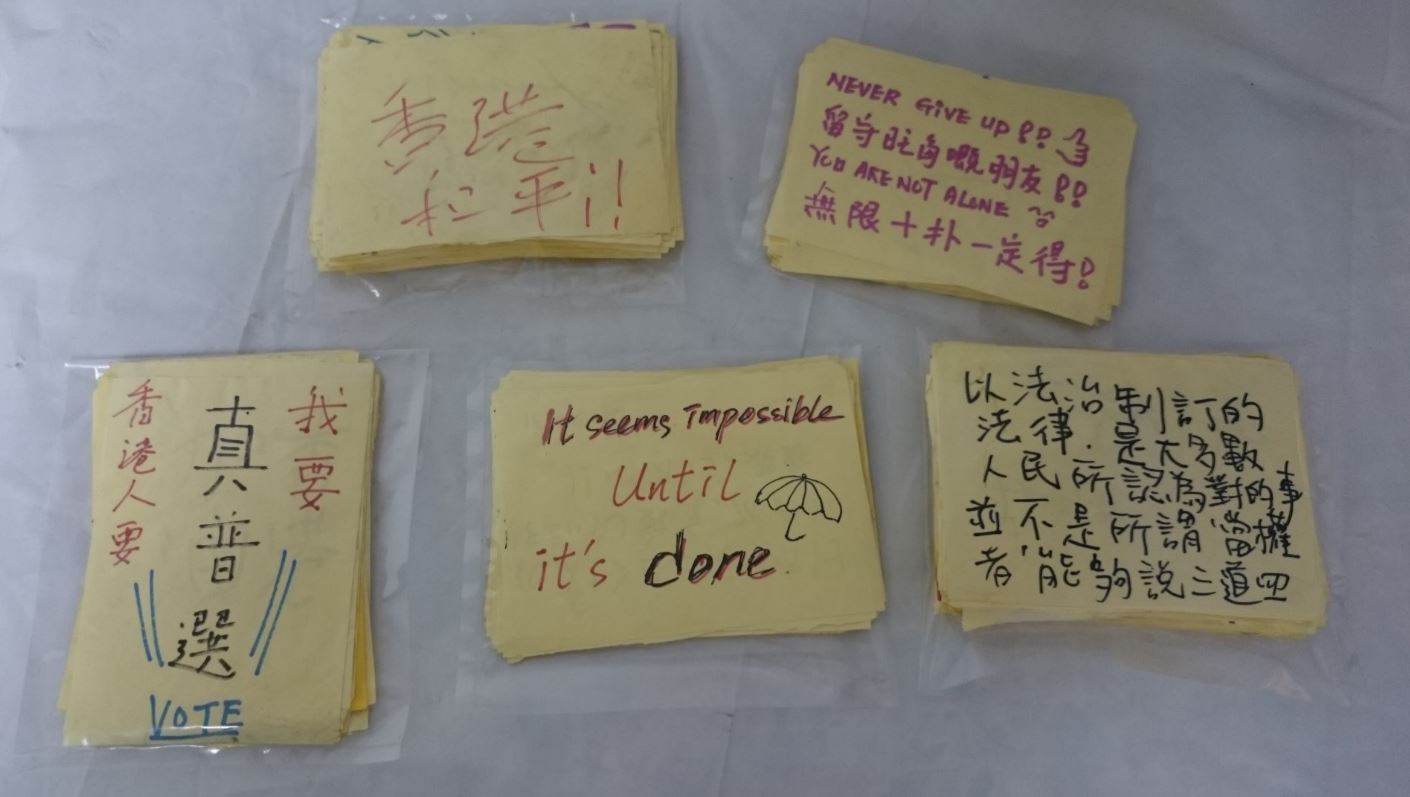 香港
和平!!
NEVER GIVE UP!!
留守旺角嘅朋友!!
YOU ARE NOT ALONE
無限十卟一定得!
我要
真普選
香港人要
VOTE
It seems impossible
Until
it's done.
以法治制訂的
法律.是大多數
人民所認為對的事
並不是所謂當權
者能夠説三道四